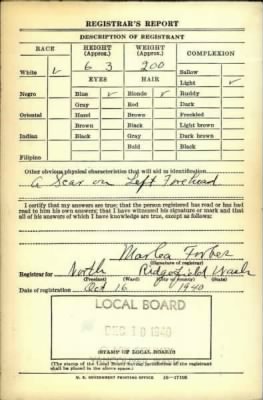 REGISTRAR'S REPORT
DESCRIPTION OF REGISTRANT
RACE HEIGHT (Approx.) WEIGHT (Approx.) COMPLEXION
6 3 200 Sallow
White ✓ EYES HAIR Light ✓
Negro Blue ✓ Blonde ✓ Ruddy
Gray Red Dark
Oriental Hazel Brown Freckled
Brown Black Light brown
Indian Black Gray Dark brown
Bald Black
Filipino
Other obvious physical characteristics that will aid in identification
A Scar on Left Forehead
I certify that my answers are true; that the person registered has read or has had
read to him his own answers; that I have witnessed his signature or mark and that
all of his answers of which I have knowledge are true, except as follows:
Forbes
(Signature of registrar)
Registrar for North Ridgefield Wash
(Precinct) (Ward) (City or county) (State)
Date of registration Oct 16 1940
LOCAL BOARD
DEC 10 1940
(STAMP OF LOCAL BOARD)
(The stamp of the Local Board having jurisdiction of the registrant
shall be placed in the above space.)
U. S. GOVERNMENT PRINTING OFFICE